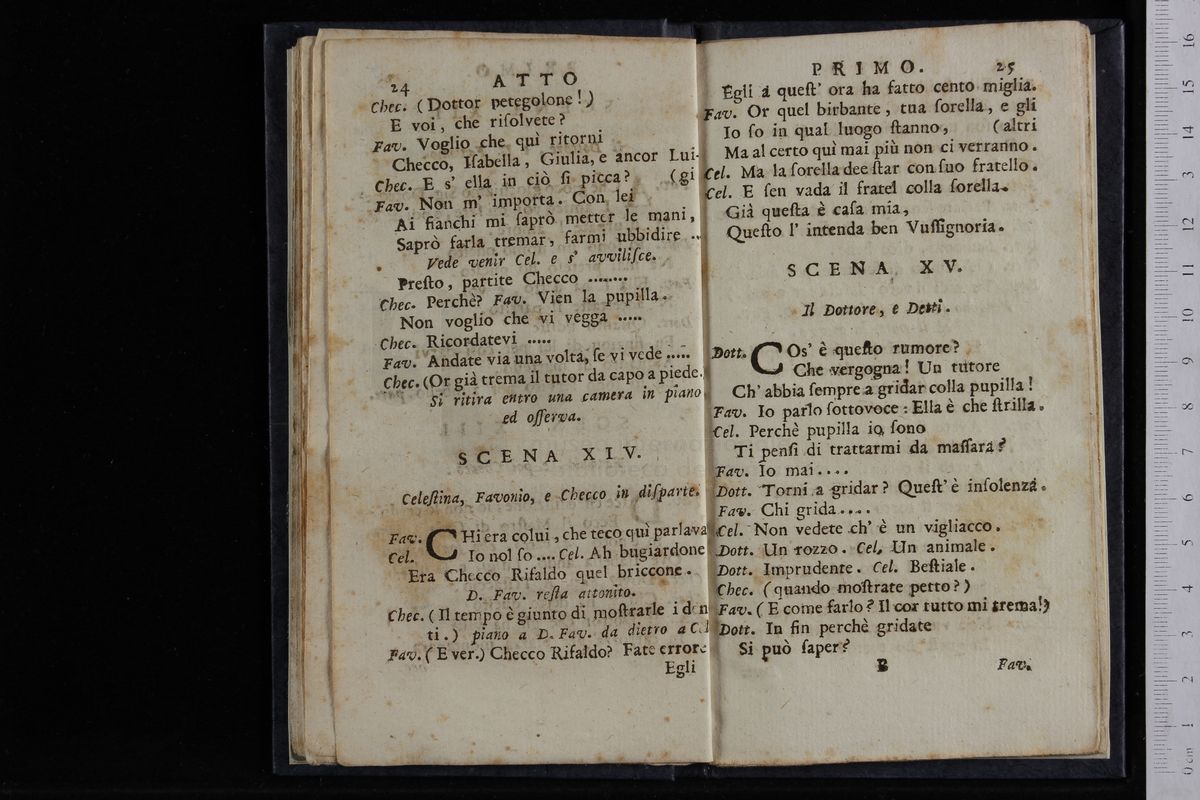 24 ATTO
Chec. (Dottor petegolone!)
E voi, che riſolvete?
Fav. Voglio che quì ritorni
Checco, Iſabella, Giulia, e ancor Lui-
Chec. E s' ella in ciò ſi picca? (gi
Fav. Non m' importa. Con lei
Ai fianchi mi ſaprò metter le mani,
Saprò farla tremar, farmi ubbidire ..
Vede venir Cel. e s' avviliſce.
Preſto, partite Checco ........
Chec. Perchè? Fav. Vien la pupilla.
Non voglio che vi vegga .....
Chec. Ricordatevi .....
Fav. Andate via una volta, ſe vi vede .....
Chec. (Or già trema il tutor da capo a piede.
Si ritira entro una camera in piano
ed oſſerva.
SCENA XIV.
Celeſtina, Favonio, e Checco in diſparte.
Fav. CHi era colui, che teco quì parlava
Cel. Io nol ſo .... Cel. Ah bugiardone
Era Checco Rifaldo quel briccone.
D. Fav. reſta attonito.
Chec. (Il tempo è giunto di moſtrarle i den
ti.) piano a D. Fav. da dietro a Cel
Fav. (E ver.) Checco Rifaldo? Fate errore
Egli
PRIMO. 25
Egli a queſt' ora ha fatto cento miglia.
Fav. Or quel birbante, tua ſorella, e gli
Io ſo in qual luogo ſtanno, (altri
Ma al certo quì mai più non ci verranno.
Cel. Ma la ſorella dee ſtar con ſuo fratello.
Cel. E ſen vada il fratel colla ſorella.
Già queſta è caſa mia,
Queſto l' intenda ben Vuſſignoria.
SCENA XV.
Il Dottore, e Detti.
Dott. COs' è queſto rumore?
Che vergogna! Un tutore
Ch' abbia ſempre a gridar colla pupilla!
Fav. Io parlo ſottovoce: Ella è che ſtrilla.
Cel. Perchè pupilla io ſono
Ti penſi di trattarmi da maſſara?
Fav. Io mai....
Dott. Torni a gridar? Queſt' è inſolenza.
Fav. Chi grida.....
Cel. Non vedete ch' è un vigliacco.
Dott. Un rozzo. Cel. Un animale.
Dott. Imprudente. Cel. Beſtiale.
Chec. (quando moſtrate petto?)
Fav. (E come farlo? Il cor tutto mi trema!)
Dott. In fin perchè gridate
Si può ſaper?
B Fav.